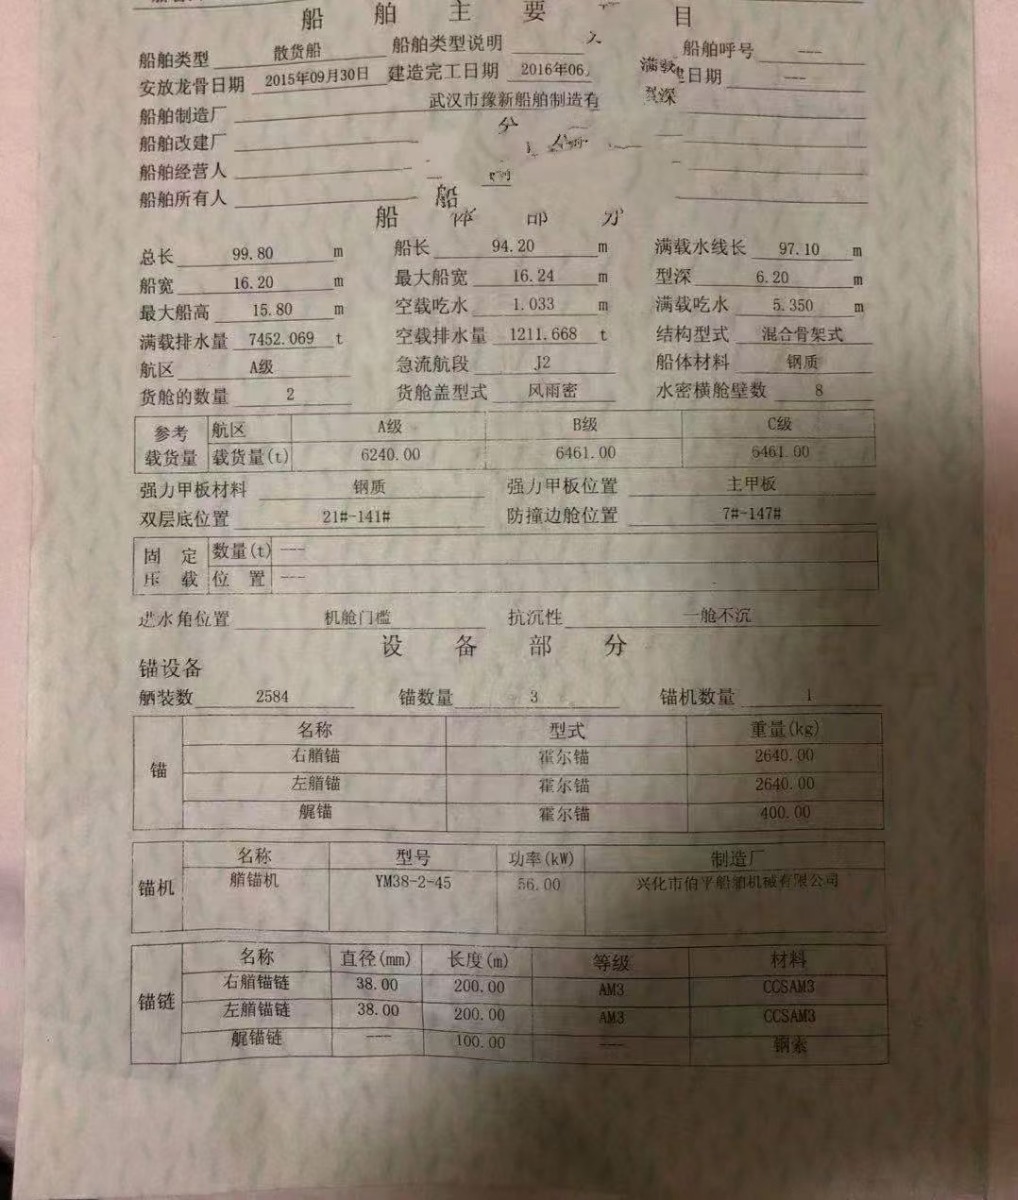 船 舶 主 要 目
船舶类型 散货船 船舶类型说明 船舶呼号 ---
安放龙骨日期 2015年09月30日 建造完工日期 2016年06 满载 日期 ---
船舶制造厂 武汉市豫新船舶制造有 深
船舶改建厂 分
船舶经营人
船舶所有人 船
船 体 部 分
总长 99.80 m 船长 94.20 m 满载水线长 97.10 m
船宽 16.20 m 最大船宽 16.24 m 型深 6.20 m
最大船高 15.80 m 空载吃水 1.033 m 满载吃水 5.350 m
满载排水量 7452.069 t 空载排水量 1211.668 t 结构型式 混合骨架式
航区 A级 急流航段 J2 船体材料 钢质
货舱的数量 2 货舱盖型式 风雨密 水密横舱壁数 8
参考 航区 A级 B级 C级
载货量 载货量(t) 6240.00 6461.00 6461.00
强力甲板材料 钢质 强力甲板位置 主甲板
双层底位置 21#-141# 防撞边舱位置 7#-147#
固 定 数量(t) ---
压 载 位 置 ---
进水角位置 机舱门槛 抗沉性 一舱不沉
设 备 部 分
锚设备
舾装数 2584 锚数量 3 锚机数量 1
名称 型式 重量(kg)
锚 右艏锚 霍尔锚 2640.00
左艏锚 霍尔锚 2640.00
艉锚 霍尔锚 400.00
名称 型号 功率(kW) 制造厂
锚机 艏锚机 YM38-2-45 56.00 兴化市伯平船舶机械有限公司
名称 直径(mm) 长度(m) 等级 材料
锚链 右艏锚链 38.00 200.00 AM3 CCSAM3
左艏锚链 38.00 200.00 AM3 CCSAM3
艉锚链 --- 100.00 --- 钢索